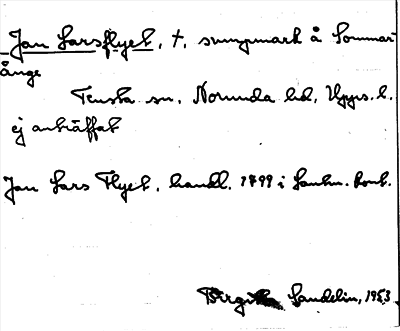 Jan Larsflyet, t, sumpmark å Sommar-
änge
Tensta sn, Norunda hd, Upps. l.
ej anträffat
Jan Lars Flyet, handl. 1799 i Lantm. kont.
Birgitta Sandelin, 1953